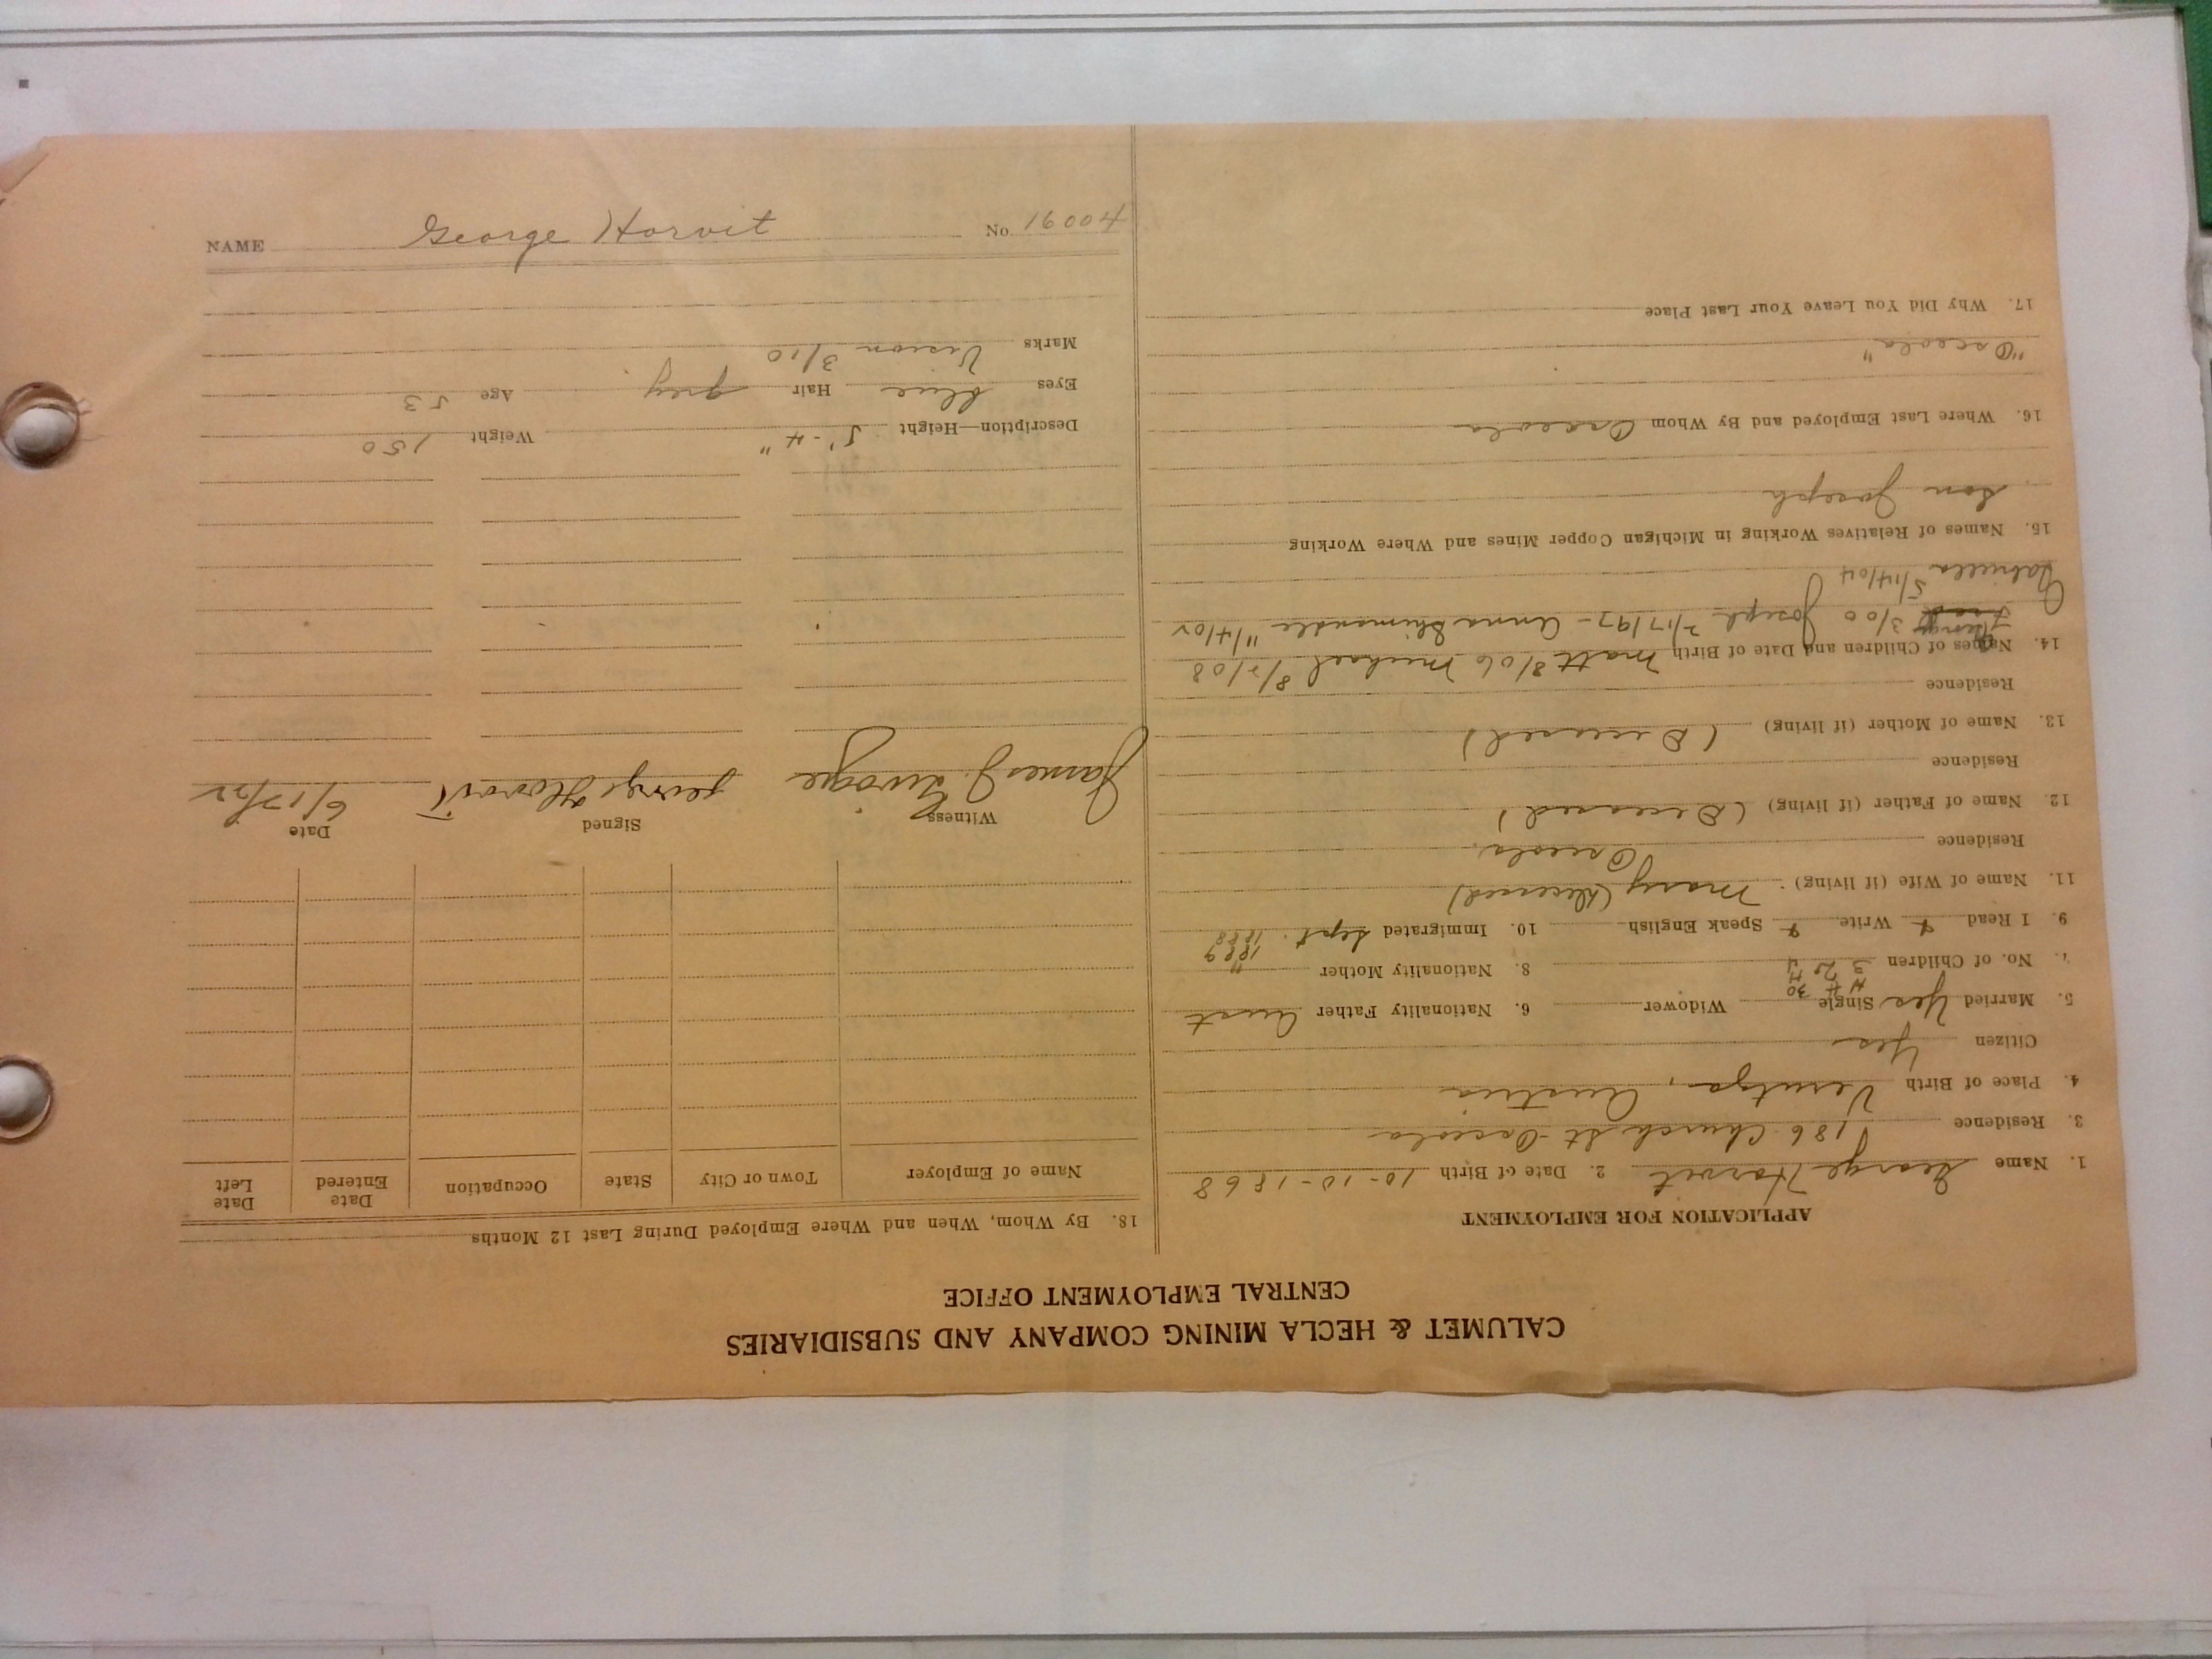 CALUMET & HECLA MINING COMPANY AND SUBSIDIARIES
CENTRAL EMPLOYMENT OFFICE
APPLICATION FOR EMPLOYMENT
1. Name George Horvit 2. Date of Birth 10-10-1868
3. Residence 186 Church St Osceola
4. Place of Birth Austria
Citizen Yes
5. Married Yes Single Widower 6. Nationality Father Aust
7. No. of Children 8. Nationality Mother "
1889
9. I Read Write Speak English 10. Immigrated Sept. 1888
11. Name of Wife (if living) Mary (Deceased)
Residence Osceola
12. Name of Father (if living) (Deceased)
Residence
13. Name of Mother (if living) (Deceased)
Residence
14. Names of Children and Date of Birth Matt 8/06 Michael 8/2/08
George 3/00 Joseph 2/17/97 - Anna 11/4/02
5/14/04
15. Names of Relatives Working in Michigan Copper Mines and Where Working
Son Joseph
16. Where Last Employed and By Whom Osceola
"Osceola"
17. Why Did You Leave Your Last Place
18. By Whom, When and Where Employed During Last 12 Months
Name of Employer Town or City State Occupation Date Entered Date Left
Witness Signed Date
James J. George Horvit 6/17/22
Description—Height 5'-4" Weight 150
Eyes blue Hair grey Age 53
Marks Vision 3/10
NAME George Horvit No. 16004